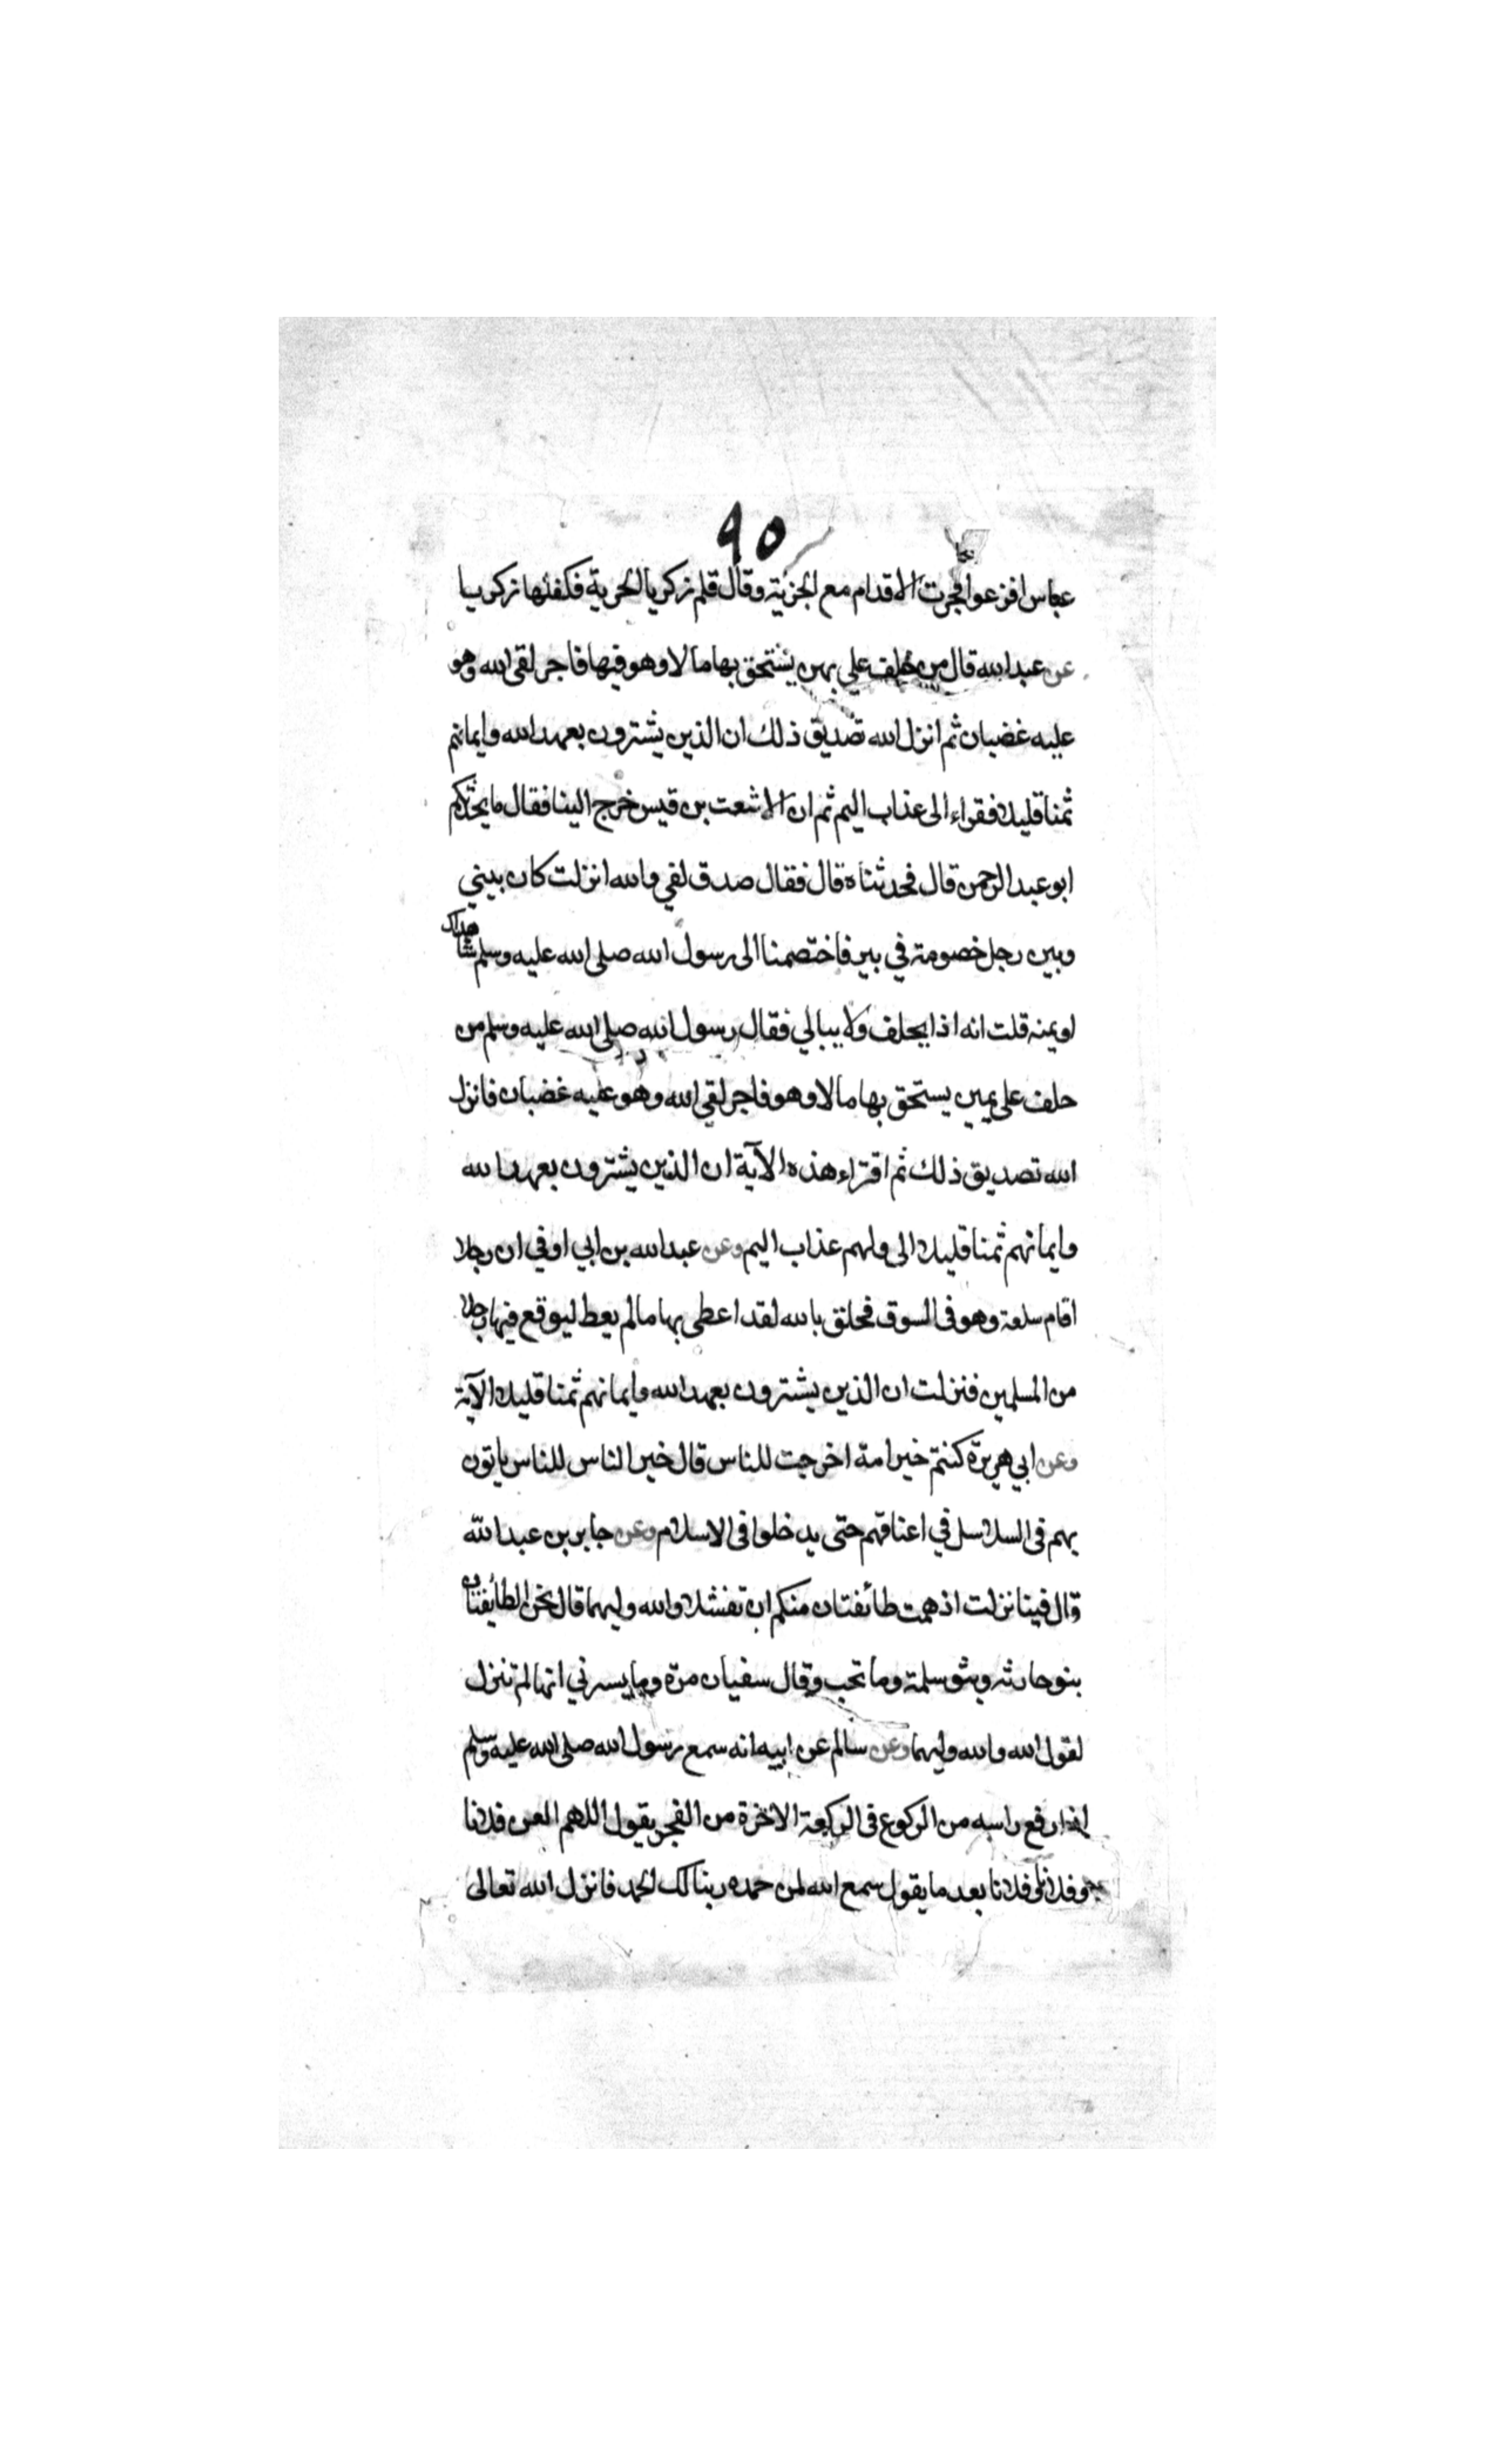 ٩٥
عباس افزعوا فجرت الاقدام مع الجزية وقال قلم زكريا الجرية فكفلها زكريا
عن عبدالله قال من حلف على يمين يستحق بها مالا وهو فيها فاجر لقى الله وهو
عليه غضبان ثم انزل الله تصديق ذلك ان الذين يشترون بعهد الله وايمانهم
ثمنا قليلا فقراء الى عذاب اليم ثم ان الاشعت بن قيس خرج الينا فقال ما يحدثكم
ابو عبد الرحمن قال فحدثناه قال فقال صدق لفي والله انزلت كان بيني
وبين رجل خصومة في بير فاختصمنا الى رسول الله صلى الله عليه وسلم شاهداك
او يمنه قلت انه اذا يحلف ولا يبالي فقال رسول الله صلى الله عليه وسلم من
حلف على يمين يستحق بها مالا وهو فاجر لقي الله وهو عليه غضبان فانزل
الله تصديق ذلك ثم اقتراء هذه الآية ان الذين يشترون بعهد الله
وايمانهم ثمنا قليلا الى ولهم عذاب اليم وعن عبدالله بن ابي اوفي ان رجلا
اقام سلعة وهو فى السوق فحلق بالله لقد اعطى بها مالم يعط ليوقع فيها رجلا
من المسلمين فنزلت ان الذين يشترون بعهد الله وايمانهم ثمنا قليلا الآية
وعن ابي هريرة كنتم خير امة اخرجت للناس قال خير الناس للناس ياتون
بهم فى السلاسل في اعناقهم حتى يدخلوا فى الاسلام وعن جابر بن عبدالله
قال فينا نزلت اذ همت طائفتان منكم ان تفشلا والله وليهما قال نحن الطائفتان
بنو حارثه وبنو سلمة وما تحب وقال سفيان مرة وما يسرني انها لم تنزل
لقول الله والله وليهما وعن سالم عن ابيه انه سمع رسول الله صلى الله عليه وسلم
اذا رفع راسه من الركوع فى الركعة الاخرة من الفجر يقول اللهم العن فلانا
وفلانا وفلانا بعد ما يقول سمع الله لمن حمده ربنا لك الحمد فانزل الله تعالى